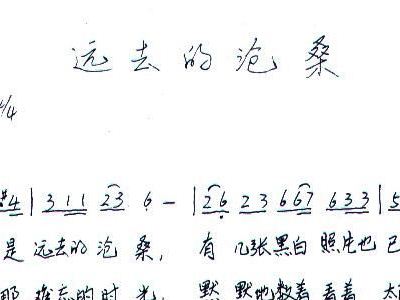 远去的沧桑
4/4
#4 | 3 1 1 2 3 6 - | 2 6 2 3 6 6 7 6 3 3 | 5
是 远去的 沧 桑, 有 几张黑白 照片也 已
那 难忘的时 光, 默 默地数着 看着